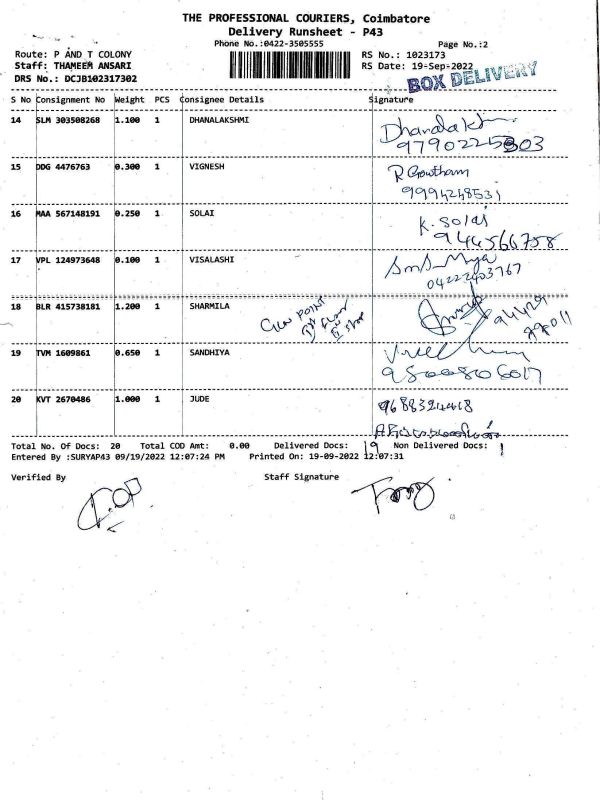 THE PROFESSIONAL COURIERS, Coimbatore
Delivery Runsheet - P43
Phone No.:0422-3505555
Page No.:2
Route: P AND T COLONY
RS No.: 1023173
Staff: THAMEEM ANSARI
RS Date: 19-Sep-2022
DRS No.: DCJB102317302
BOX DELIVERY
S No Consignment No Weight PCS Consignee Details Signature
14 SLM 303508268 1.100 1 DHANALAKSHMI
9790225303
15 DDG 4476763 0.300 1 VIGNESH R Gowtham
9994248531
16 MAA 567148191 0.250 1 SOLAI K. Solai
944566758
17 VPL 124973648 0.100 1 VISALASHI
04222403767
18 BLR 415738181 1.200 1 SHARMILA
19 TVM 1609861 0.650 1 SANDHIYA
20 KVT 2670486 1.000 1 JUDE
Total No. Of Docs: 20 Total COD Amt: 0.00 Delivered Docs: 19 Non Delivered Docs: 1
Entered By :SURYAP43 09/19/2022 12:07:24 PM Printed On: 19-09-2022 12:07:31
Verified By Staff Signature